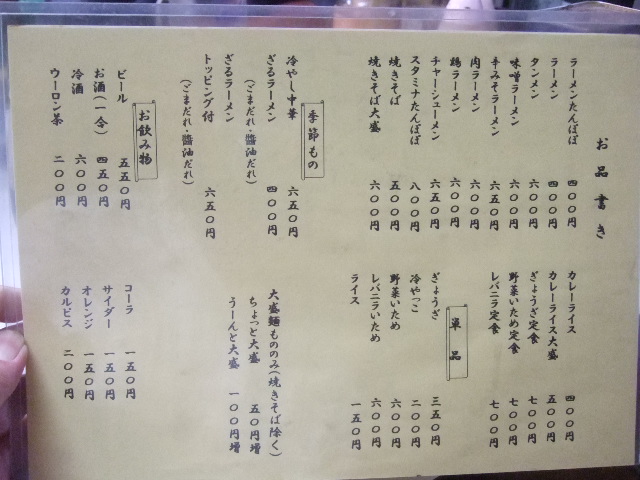 お品書き
ラーメンたんぽぽ 四〇〇円
ラーメン 四〇〇円
タンメン 六〇〇円
味噌ラーメン 六〇〇円
辛みそラーメン 六五〇円
肉ラーメン 六〇〇円
鶏ラーメン 六〇〇円
チャーシューメン 六五〇円
スタミナたんぽぽ 八〇〇円
焼きそば 五〇〇円
焼きそば大盛 六〇〇円
カレーライス 四〇〇円
カレーライス大盛 五〇〇円
ぎょうざ定食 七〇〇円
野菜いため定食 七〇〇円
レバニラ定食 七〇〇円
単品
ぎょうざ 三五〇円
冷やっこ 二〇〇円
野菜いため 六〇〇円
レバニラいため 六〇〇円
ライス 一五〇円
季節もの
冷やし中華 六五〇円
ざるラーメン 四〇〇円
(ごまだれ・醤油だれ)
ざるラーメン
トッピング付 六五〇円
(ごまだれ・醤油だれ)
大盛麺もののみ(焼きそば除く)
ちょっと大盛 五〇円増
うーんと大盛 一〇〇円増
お飲み物
ビール 五五〇円
お酒(一合) 四五〇円
冷酒 六〇〇円
ウーロン茶 二〇〇円
コーラ 一五〇円
サイダー 一五〇円
オレンジ 一五〇円
カルピス 二〇〇円